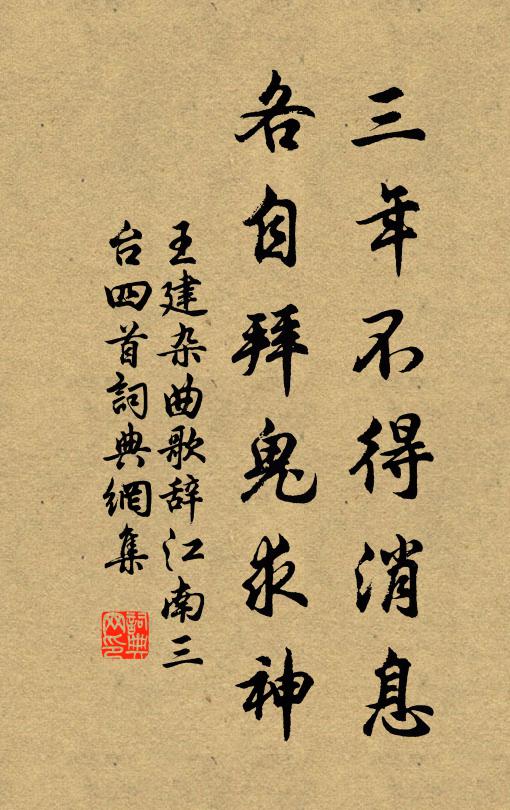 三年不得消息
各自拜鬼求神
王建杂曲歌辞江南三
台四首詞典網集
詞典
网印